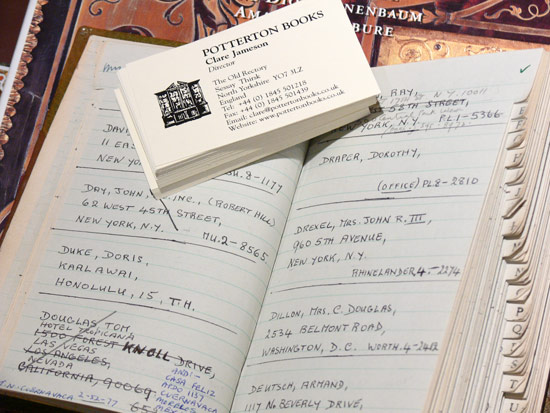 NENBAUM
AM
BURE
POTTERTON BOOKS
Clare Jameson
Director
The Old Rectory
Sessay Thirsk
North Yorkshire YO7 3LZ
England
Tel: +44 (0) 1845 501218
Fax: +44 (0) 1845 501439
Email: clare@pottertonbooks.co.uk
Website: www.pottertonbooks.co.uk
DAVI
11 EAS
NEW YO
U.8-1177
DRY, JOHN, INC., (ROBERT HILL)
62 WEST 45TH STREET,
NEW YORK, N.Y. MU.2-8565
DUKE, DORIS,
KAALAWAI,
HONOLULU, 15, T.H.
DOUGLAS, TOM
HOTEL TROPICANA
1500 FOREST KNOLL DRIVE,
LAS VEGAS
LOS ANGELES,
NEVADA
CALIFORNIA, 90069
ANDI-
CASA FELIZ
APDO 1137
CUERNAVACA
MORELOS
2-52-77
RAY,
N.Y. 10011
55TH STREET,
YORK, N.Y. PL1-5366
DRAPER, DOROTHY,
(OFFICE) PL8-2810
DREXEL, MRS. JOHN R. III,
960 5TH AVENUE,
NEW YORK, N.Y.
RHINELANDER 4-2274
DILLON, MRS. C. DOUGLAS,
2534 BELMONT ROAD,
WASHINGTON, D.C. WORTH.4-2412
DEUTSCH, ARMAND,
1117 NO. BEVERLY DRIVE,